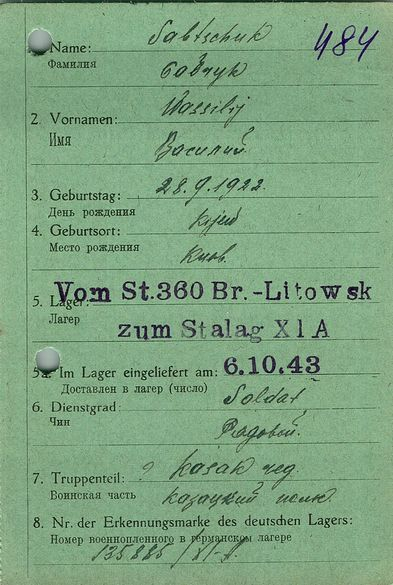 Sabtschuk 484
1. Name:
Фамилия Савчук
Wassilij
2. Vornamen:
Имя Василий.
3. Geburtstag: 28.9.1922.
День рождения
4. Geburtsort: Kijew
Место рождения Киев.
5. Lager: Vom St.360 Br.-Litowsk
Лагерь zum Stalag XI A
5a. Im Lager eingeliefert am: 6.10.43
Доставлен в лагерь (число)
6. Dienstgrad: Soldat,
Чин Рядовой.
7. Truppenteil: ? Kosak
Воинская часть казацкий полк
8. Nr. der Erkennungsmarke des deutschen Lagers:
Номер военнопленного в германском лагере
135885/XI-A.